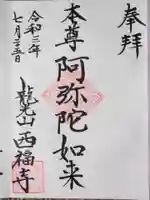 奉拝
本尊 阿弥陀如来
龍光山西福寺
令和三年
七月二十五日